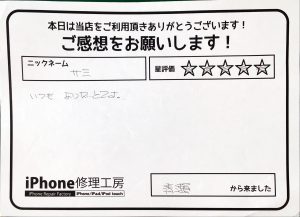 本日は当店をご利用頂きありがとうございます！
ご感想をお願いします！
ニックネーム
サミ
星評価 ☆☆☆☆☆
いつも
iPhone修理工房
iPhone Repair Factory iPhone/iPad/iPod touch
から来ました